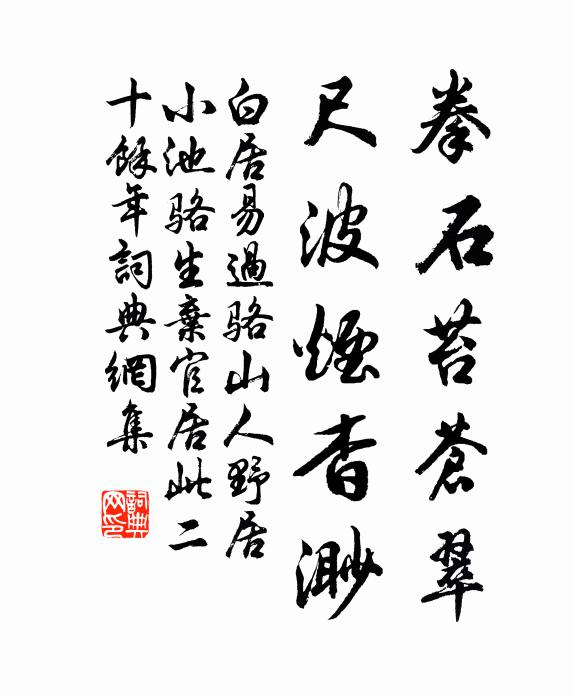 拳石苔蒼翠
尺波煙杳渺
白居易過骆山人野居
小池骆生棄官居此二
十餘年詞典網集
詞典网印